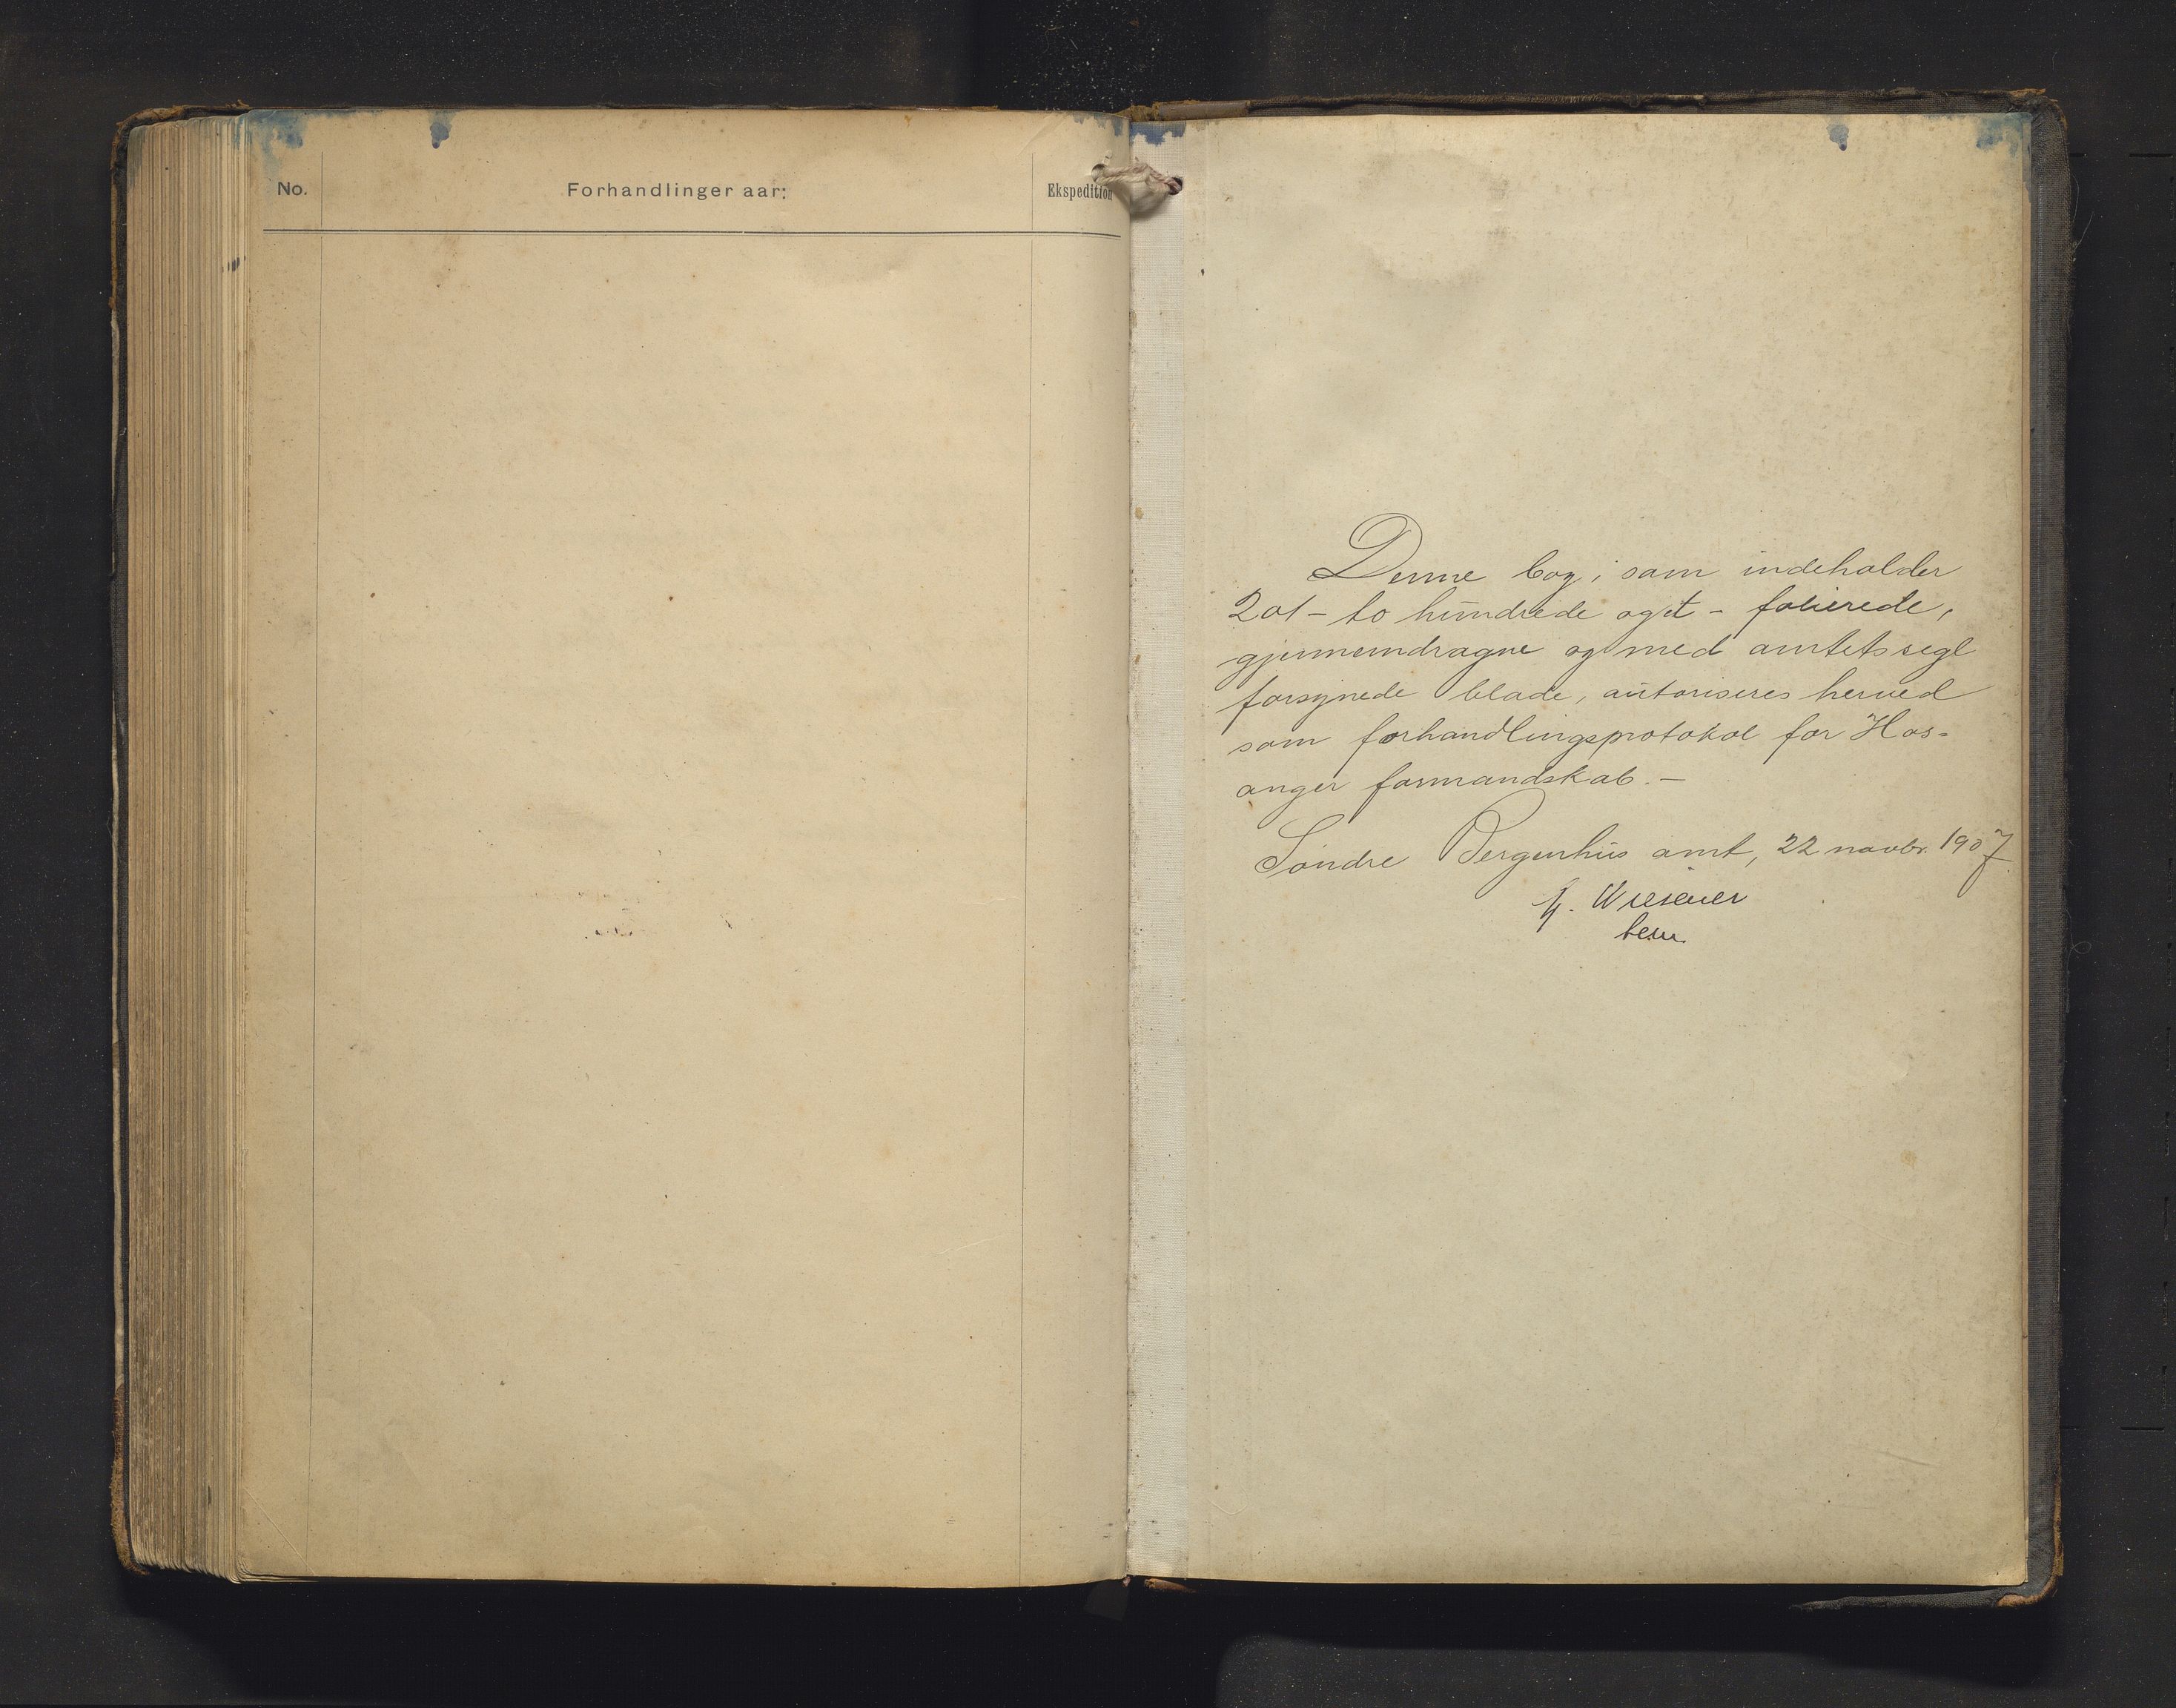 No. Forhandlinger aar: Ekspedition
Denne bog, som indeholder
201 - to hundrede og et - folierede,
gjennemdragne og med amtets segl
forsynede blade, autoriseres herved
som forhandlingsprotokol for Hos-
anger formandskab. -
Söndre Bergenhus amt, 22 novbr. 1907.
Wiesener